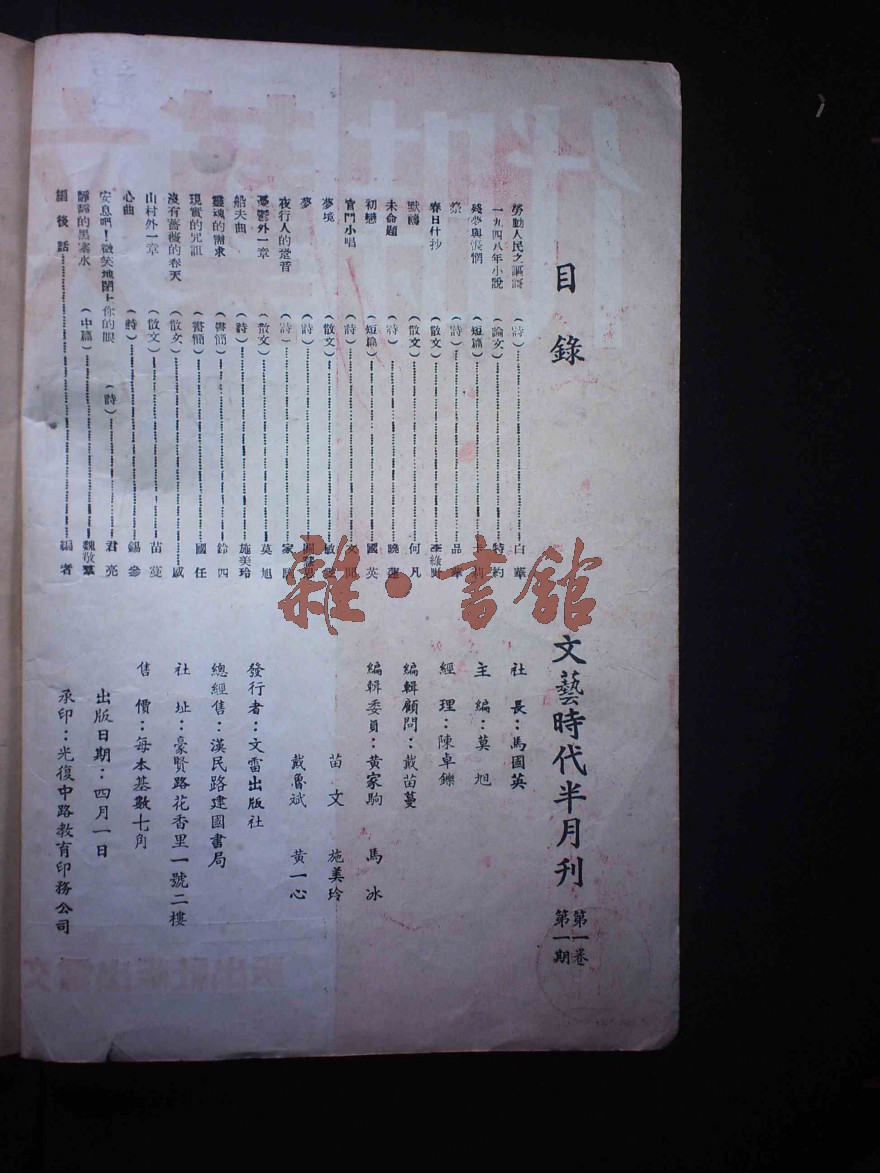 目錄
勞動人民之謳謌（詩）白華
一九四八年小說（論文）特約
殘夢與悵惘（短篇）
祭（詩）品華
春日什抄（散文）李綠野
默禱（散文）何凡
未命題（詩）曉蓮
初戀（短篇）國英
官門小唱（詩）
夢境（散文）
夢（詩）
夜行人的跫音（詩）家
憂鬱外一章（散文）莫旭
船夫曲（詩）施美玲
靈魂的需求（書簡）鈴四
現實的咒詛（書簡）國任
沒有薔薇的春天（散文）威
山村外一章（散文）苗蔓
心曲（詩）錫參
安息吧！微笑地閉上你的眼（詩）君亮
靜靜的黑寨水（中篇）魏敬羣
編後話 編者
文藝時代半月刊 第一卷 第一期
社長：馬國英
主編：莫旭
經理：陳卓鑠
編輯顧問：戴苗蔓
編輯委員：黃家駒 馬冰
苗文 施美玲
戴魯斌 黃一心
發行者：文雷出版社
總經售：漢民路建國書局
社址：豪賢路花香里一號二樓
售價：每本基數七角
出版日期：四月一日
承印：光復中路教育印務公司
雜·書館